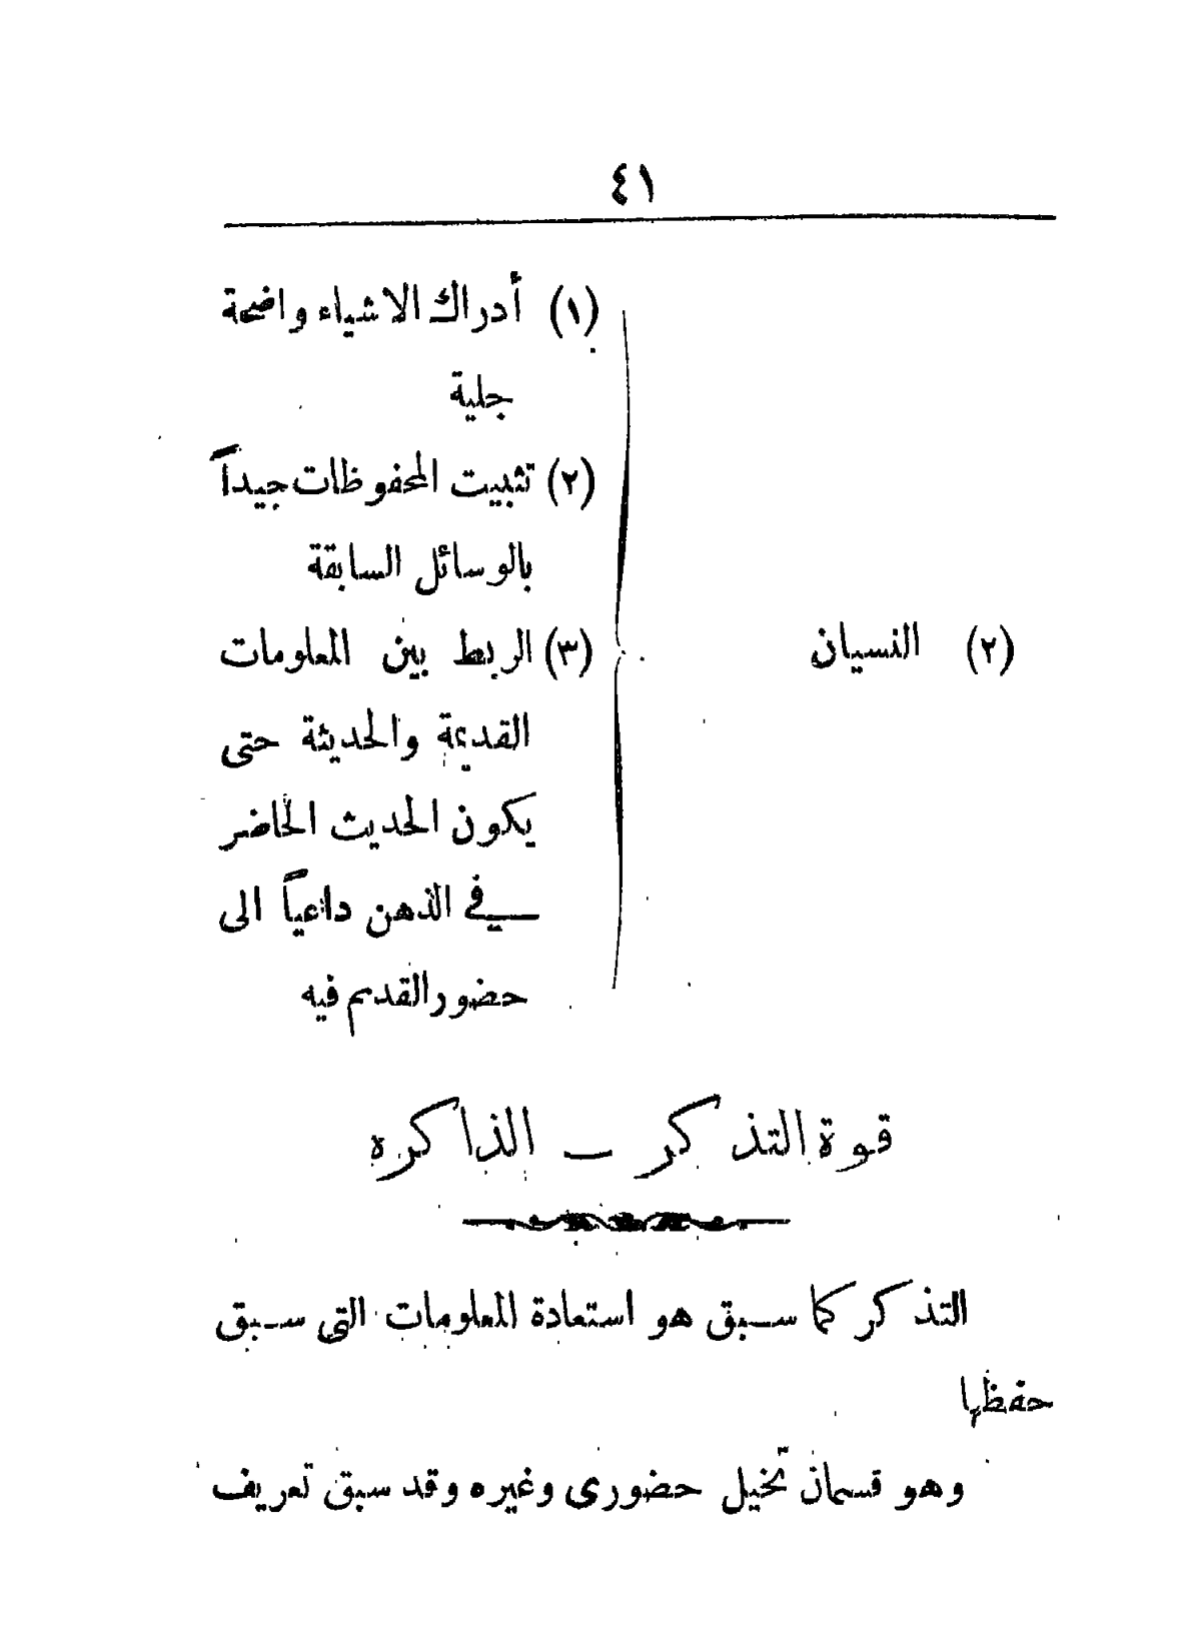 ٤١
(١) أدراك الاشياء واضحة
جلية
(٢) تثبيت المحفوظات جيداً
بالوسائل السابقة
(٢) النسيان
(٣) الربط بين المعلومات
القديمة والحديثة حتى
يكون الحديث الحاضر
في الذهن داعياً الى
حضور القديم فيه
قوة التذكر — الذاكره
التذكر كما سبق هو استعادة المعلومات التي سبق
حفظها
وهو قسمان تخيل حضورى وغيره وقد سبق تعريف